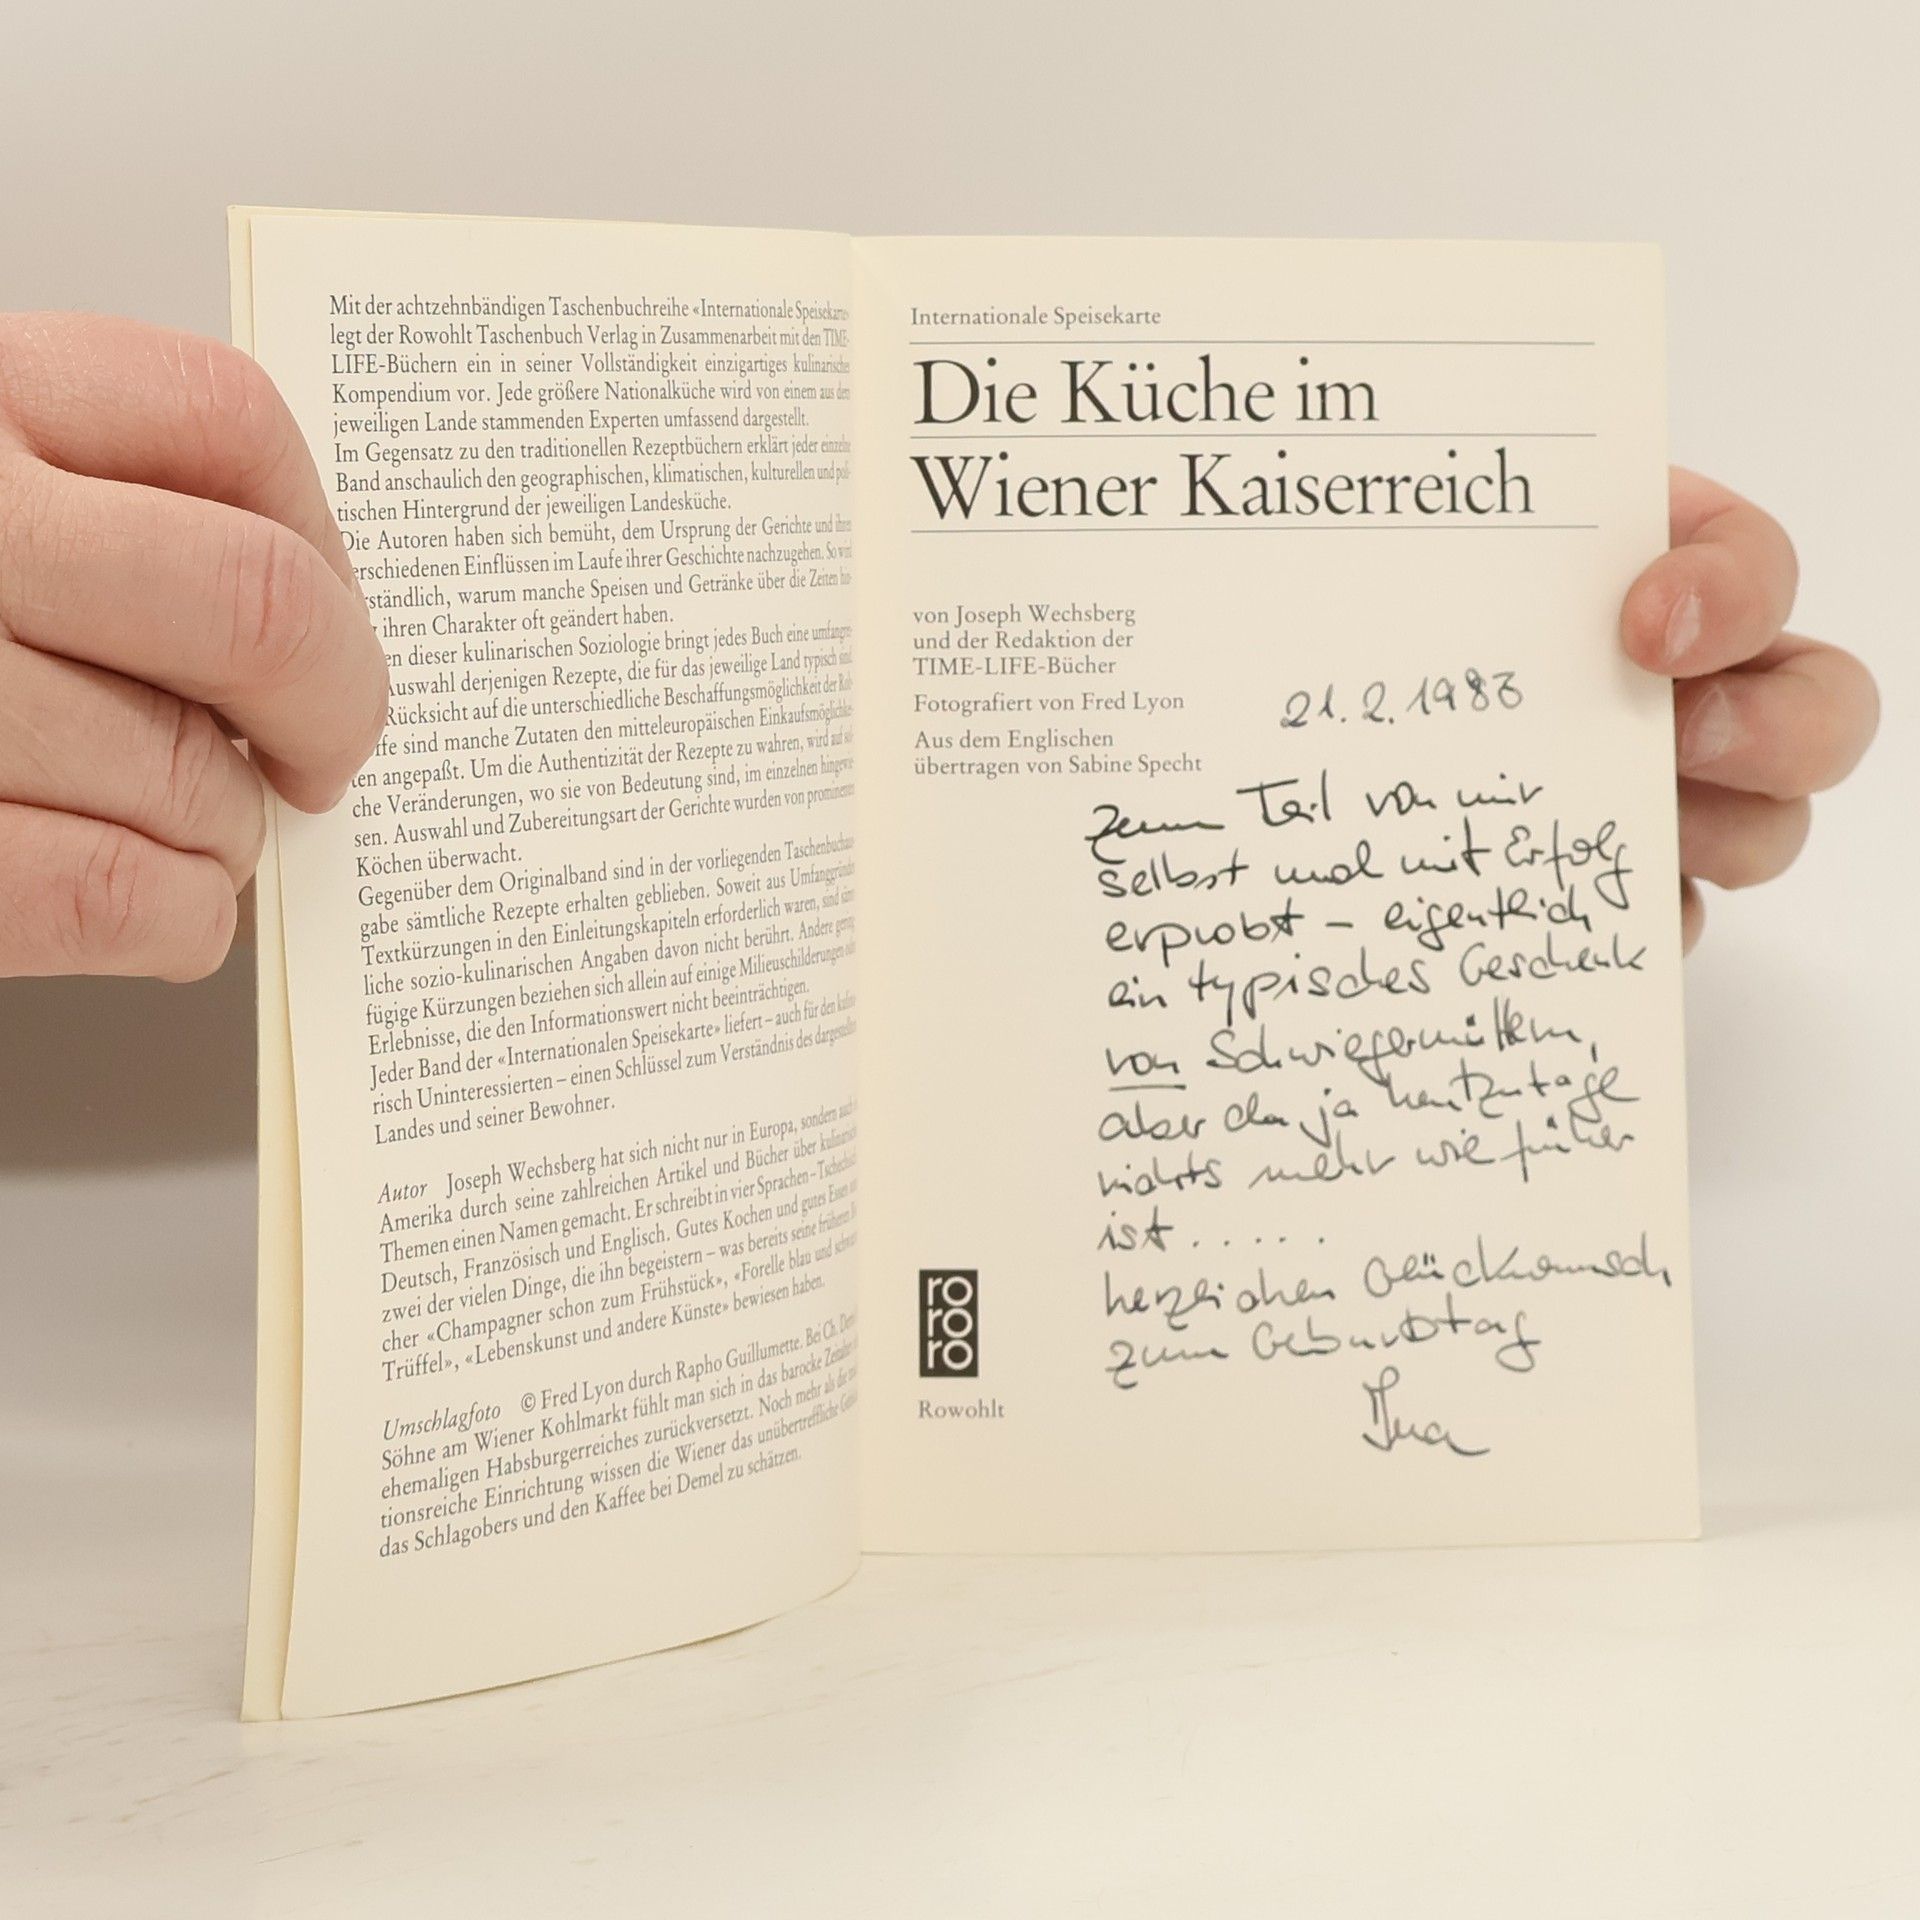 Mit der achtzehnbändigen Taschenbuchreihe «Internationale Speisekarte»
legt der Rowohlt Taschenbuch Verlag in Zusammenarbeit mit den TIME-
LIFE-Büchern ein in seiner Vollständigkeit einzigartiges kulinarisches
Kompendium vor. Jede größere Nationalküche wird von einem aus dem
jeweiligen Lande stammenden Experten umfassend dargestellt.
Im Gegensatz zu den traditionellen Rezeptbüchern erklärt jeder einzelne
Band anschaulich den geographischen, klimatischen, kulturellen und poli-
tischen Hintergrund der jeweiligen Landesküche.
Die Autoren haben sich bemüht, dem Ursprung der Gerichte und ihren
erschiedenen Einflüssen im Laufe ihrer Geschichte nachzugehen. So wird
rständlich, warum manche Speisen und Getränke über die Zeiten hin-
ihren Charakter oft geändert haben.
en dieser kulinarischen Soziologie bringt jedes Buch eine umfangre-
Auswahl derjenigen Rezepte, die für das jeweilige Land typisch sind
Rücksicht auf die unterschiedliche Beschaffungsmöglichkeit der Roh-
ffe sind manche Zutaten den mitteleuropäischen Einkaufsmöglichkei-
ten angepaßt. Um die Authentizität der Rezepte zu wahren, wird auf sol-
che Veränderungen, wo sie von Bedeutung sind, im einzelnen hingewie-
sen. Auswahl und Zubereitungsart der Gerichte wurden von prominenten
Köchen überwacht.
Gegenüber dem Originalband sind in der vorliegenden Taschenbuchaus-
gabe sämtliche Rezepte erhalten geblieben. Soweit aus Umfanggründen
Textkürzungen in den Einleitungskapiteln erforderlich waren, sind sämt-
liche sozio-kulinarischen Angaben davon nicht berührt. Andere gering-
fügige Kürzungen beziehen sich allein auf einige Milieuschilderungen oder
Erlebnisse, die den Informationswert nicht beeinträchtigen.
Jeder Band der «Internationalen Speisekarte» liefert – auch für den kulina-
risch Uninteressierten – einen Schlüssel zum Verständnis des dargestellten
Landes und seiner Bewohner.
Autor Joseph Wechsberg hat sich nicht nur in Europa, sondern auch in
Amerika durch seine zahlreichen Artikel und Bücher über kulinarische
Themen einen Namen gemacht. Er schreibt in vier Sprachen – Tschechisch,
Deutsch, Französisch und Englisch. Gutes Kochen und gutes Essen sind
zwei der vielen Dinge, die ihn begeistern – was bereits seine früheren Bü-
cher «Champagner schon zum Frühstück», «Forelle blau und schwarze
Trüffel», «Lebenskunst und andere Künste» bewiesen haben.
Umschlagfoto © Fred Lyon durch Rapho Guillumette. Bei Ch. Demel
Söhne am Wiener Kohlmarkt fühlt man sich in das barocke Zeitalter des
ehemaligen Habsburgerreiches zurückversetzt. Noch mehr als die tradi-
tionsreiche Einrichtung wissen die Wiener das unübertreffliche Gebäck,
das Schlagobers und den Kaffee bei Demel zu schätzen.
Internationale Speisekarte
Die Küche im
Wiener Kaiserreich
von Joseph Wechsberg
und der Redaktion der
TIME-LIFE-Bücher
Fotografiert von Fred Lyon
Aus dem Englischen
übertragen von Sabine Specht
21. 2. 1983
Zum Teil von mir
selbst und mit Erfolg
erprobt – eigentlich
ein typisches Geschenk
von Schwiegermüttern,
aber da ja heutzutage
nichts mehr wie früher
ist .....
herzlichen Glückwunsch
zum Geburtstag
ro
ro
ro
Rowohlt